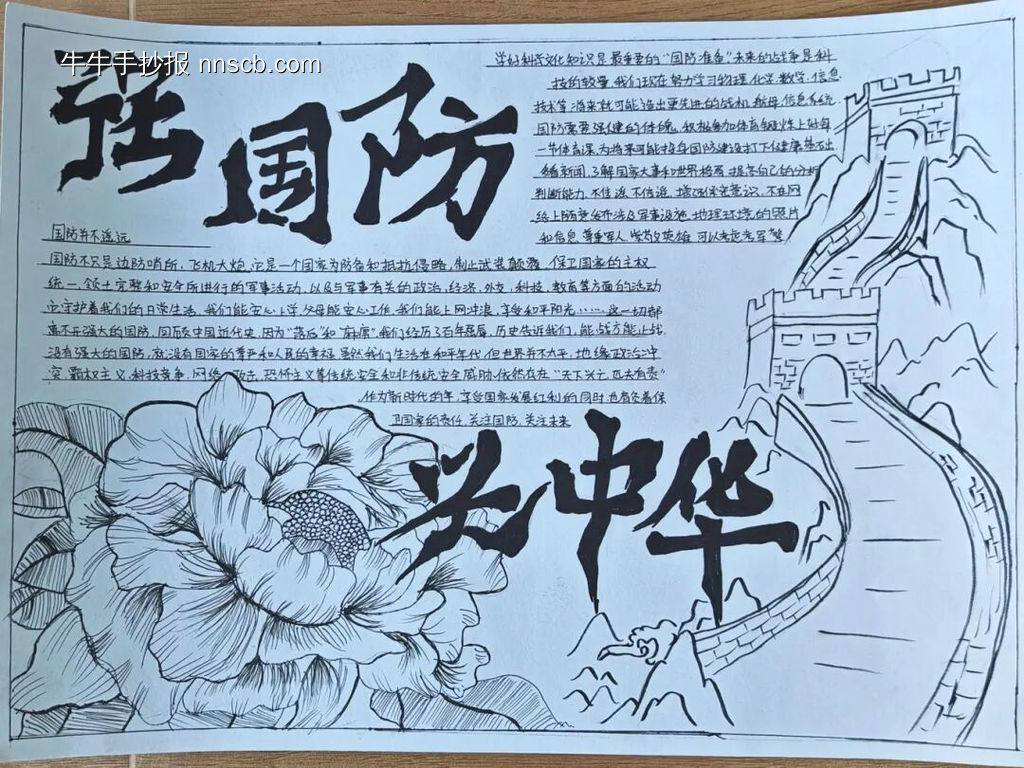 牛牛手抄报 nnscb.com
强国防
学好科学文化知识是最重要的“国防准备”未来的战争是科
技的较量,我们现在努力学习物理,化学,数学,信息
技术等,将来就可能造出更先进的战机,航母,信息系统
国防需要强健的体魄,积极参加体育锻炼上好每
一节体育课,为将来可能投身国防建设打下健康基础
多看新闻,了解国家大事和世界格局,提高自己的分辨
判断能力,不信谣,不传谣,增强保密意识,不在网
络上随意发布涉及军事设施,地理环境的照片
和信息,尊重军人,崇敬英雄,可以考虑考军警
国防并不遥远
国防不只是边防哨所,飞机大炮,它是一个国家为防备和抵抗侵略,制止武装颠覆,保卫国家的主权
统一,领土完整和安全所进行的军事活动,以及与军事有关的政治,经济,外交,科技,教育等方面的活动
它守护着我们的日常生活,我们能安心上学,父母能安心工作,我们能上网冲浪,享受和平阳光……这一切都
离不开强大的国防,回顾中国近代史,因为“落后”和“麻痹”我们经历了百年屈辱,历史告诉我们,能战方能止战
没有强大的国防,就没有国家的尊严和人民的幸福,虽然我们生活在和平年代,但世界并不太平,地缘政治冲
突,霸权主义,科技竞争,网络攻击,恐怖主义等传统安全和非传统安全威胁依然存在“天下兴亡,匹夫有责”
作为新时代的青年,享受国家发展红利的同时,也有负着保
卫国家的责任,关注国防,关注未来
兴中华